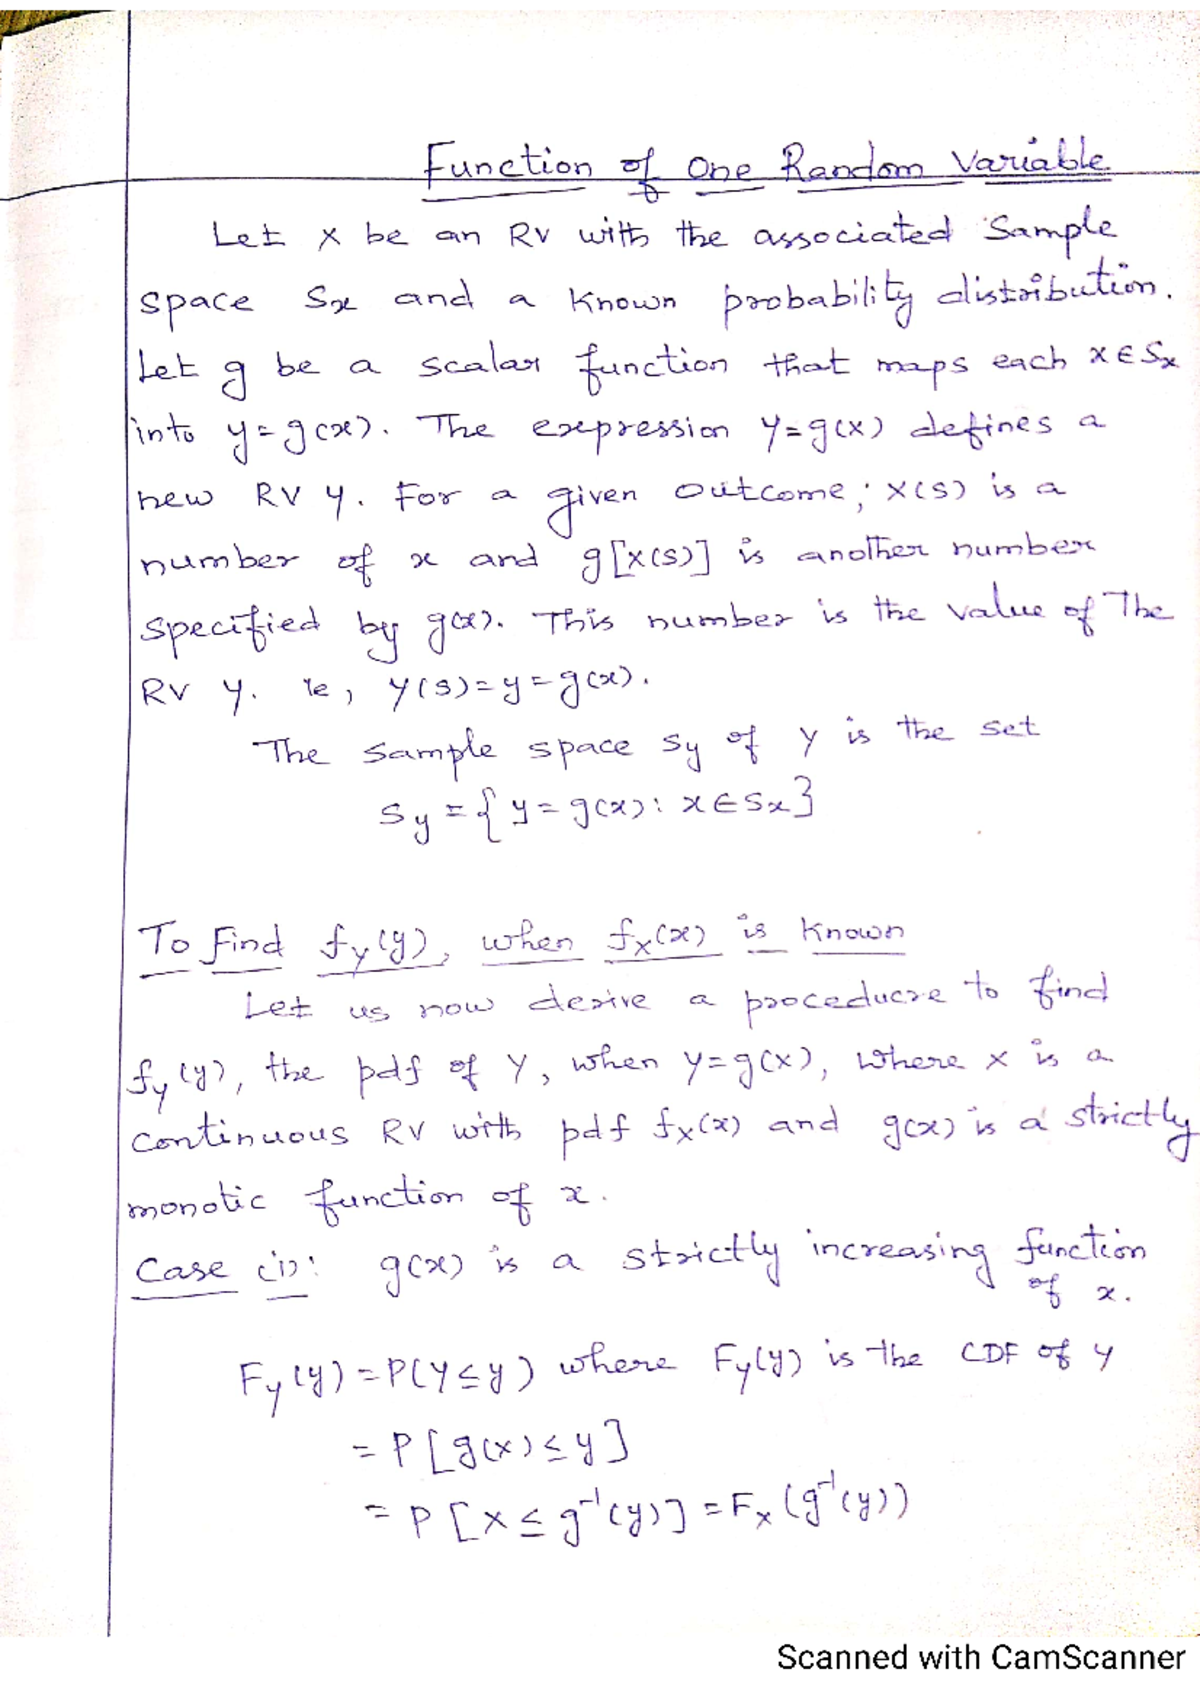 Function of One Random Variable
Let X be an RV with the associated Sample
space Sx and a known probability distribution.
Let g be a scalar function that maps each x ∈ Sx
into y = g(x). The expression Y = g(X) defines a
new RV Y. For a given outcome, X(s) is a
number of x and g[X(s)] is another number
specified by g(x). This number is the value of The
RV Y. ie, Y(s) = y = g(x).
The sample space Sy of Y is the set
Sy = { y = g(x) : x ∈ Sx }
To Find fy(y), when fx(x) is known
Let us now derive a proceducre to find
fy(y), the pdf of Y, when Y = g(X), where X is a
continuous RV with pdf fx(x) and g(x) is a strictly
monotic function of x.
Case (i): g(x) is a strictly increasing function
of x.
Fy(y) = P(Y ≤ y) where Fy(y) is the CDF of Y
= P [g(X) ≤ y]
= P [X ≤ g⁻¹(y)] = Fx (g⁻¹(y))
Scanned with CamScanner